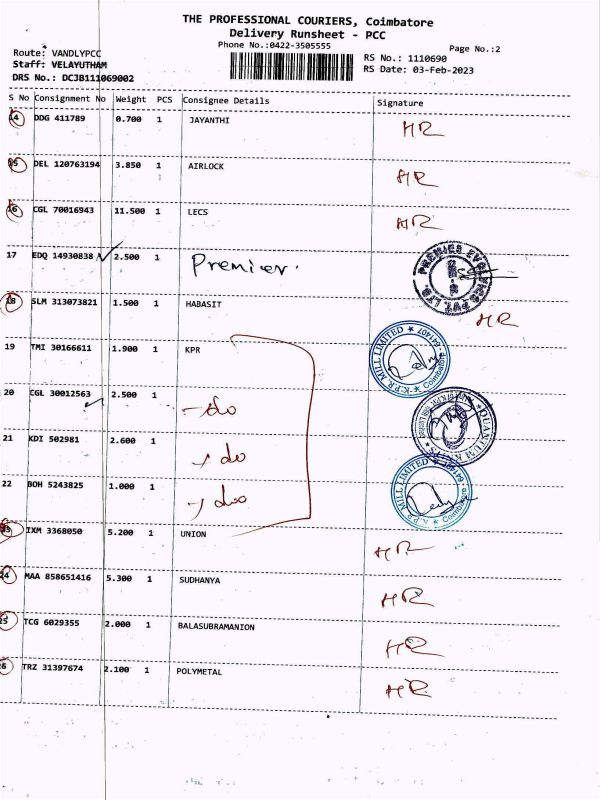 THE PROFESSIONAL COURIERS, Coimbatore
Delivery Runsheet - PCC
Phone No.:0422-3505555
Page No.:2
Route: VANDLYPCC
Staff: VELAYUTHAM
DRS No.: DCJB111069002
RS No.: 1110690
RS Date: 03-Feb-2023
S No Consignment No Weight PCS Consignee Details Signature
14 DDG 411789 0.700 1 JAYANTHI HR
15 DEL 120763194 3.850 1 AIRLOCK HR
16 CGL 70016943 11.500 1 LECS HR
17 EDQ 14930838 2.500 1 Premier.
18 SLM 313073821 1.500 1 HABASIT HR
19 TMI 30166611 1.900 1 KPR
K.P.R. MILL LIMITED Coimbatore 641407
20 CGL 30012563 2.500 1 do
QUANTUM KNITS
21 KDI 502981 2.600 1 do
22 BOH 5243825 1.000 1 do
K.P.R. MILL LIMITED Coimbatore
23 IXM 3368050 5.200 1 UNION HR
24 MAA 858651416 5.300 1 SUDHANYA HR
25 TCG 6029355 2.000 1 BALASUBRAMANION HR
26 TRZ 31397674 2.100 1 POLYMETAL HR